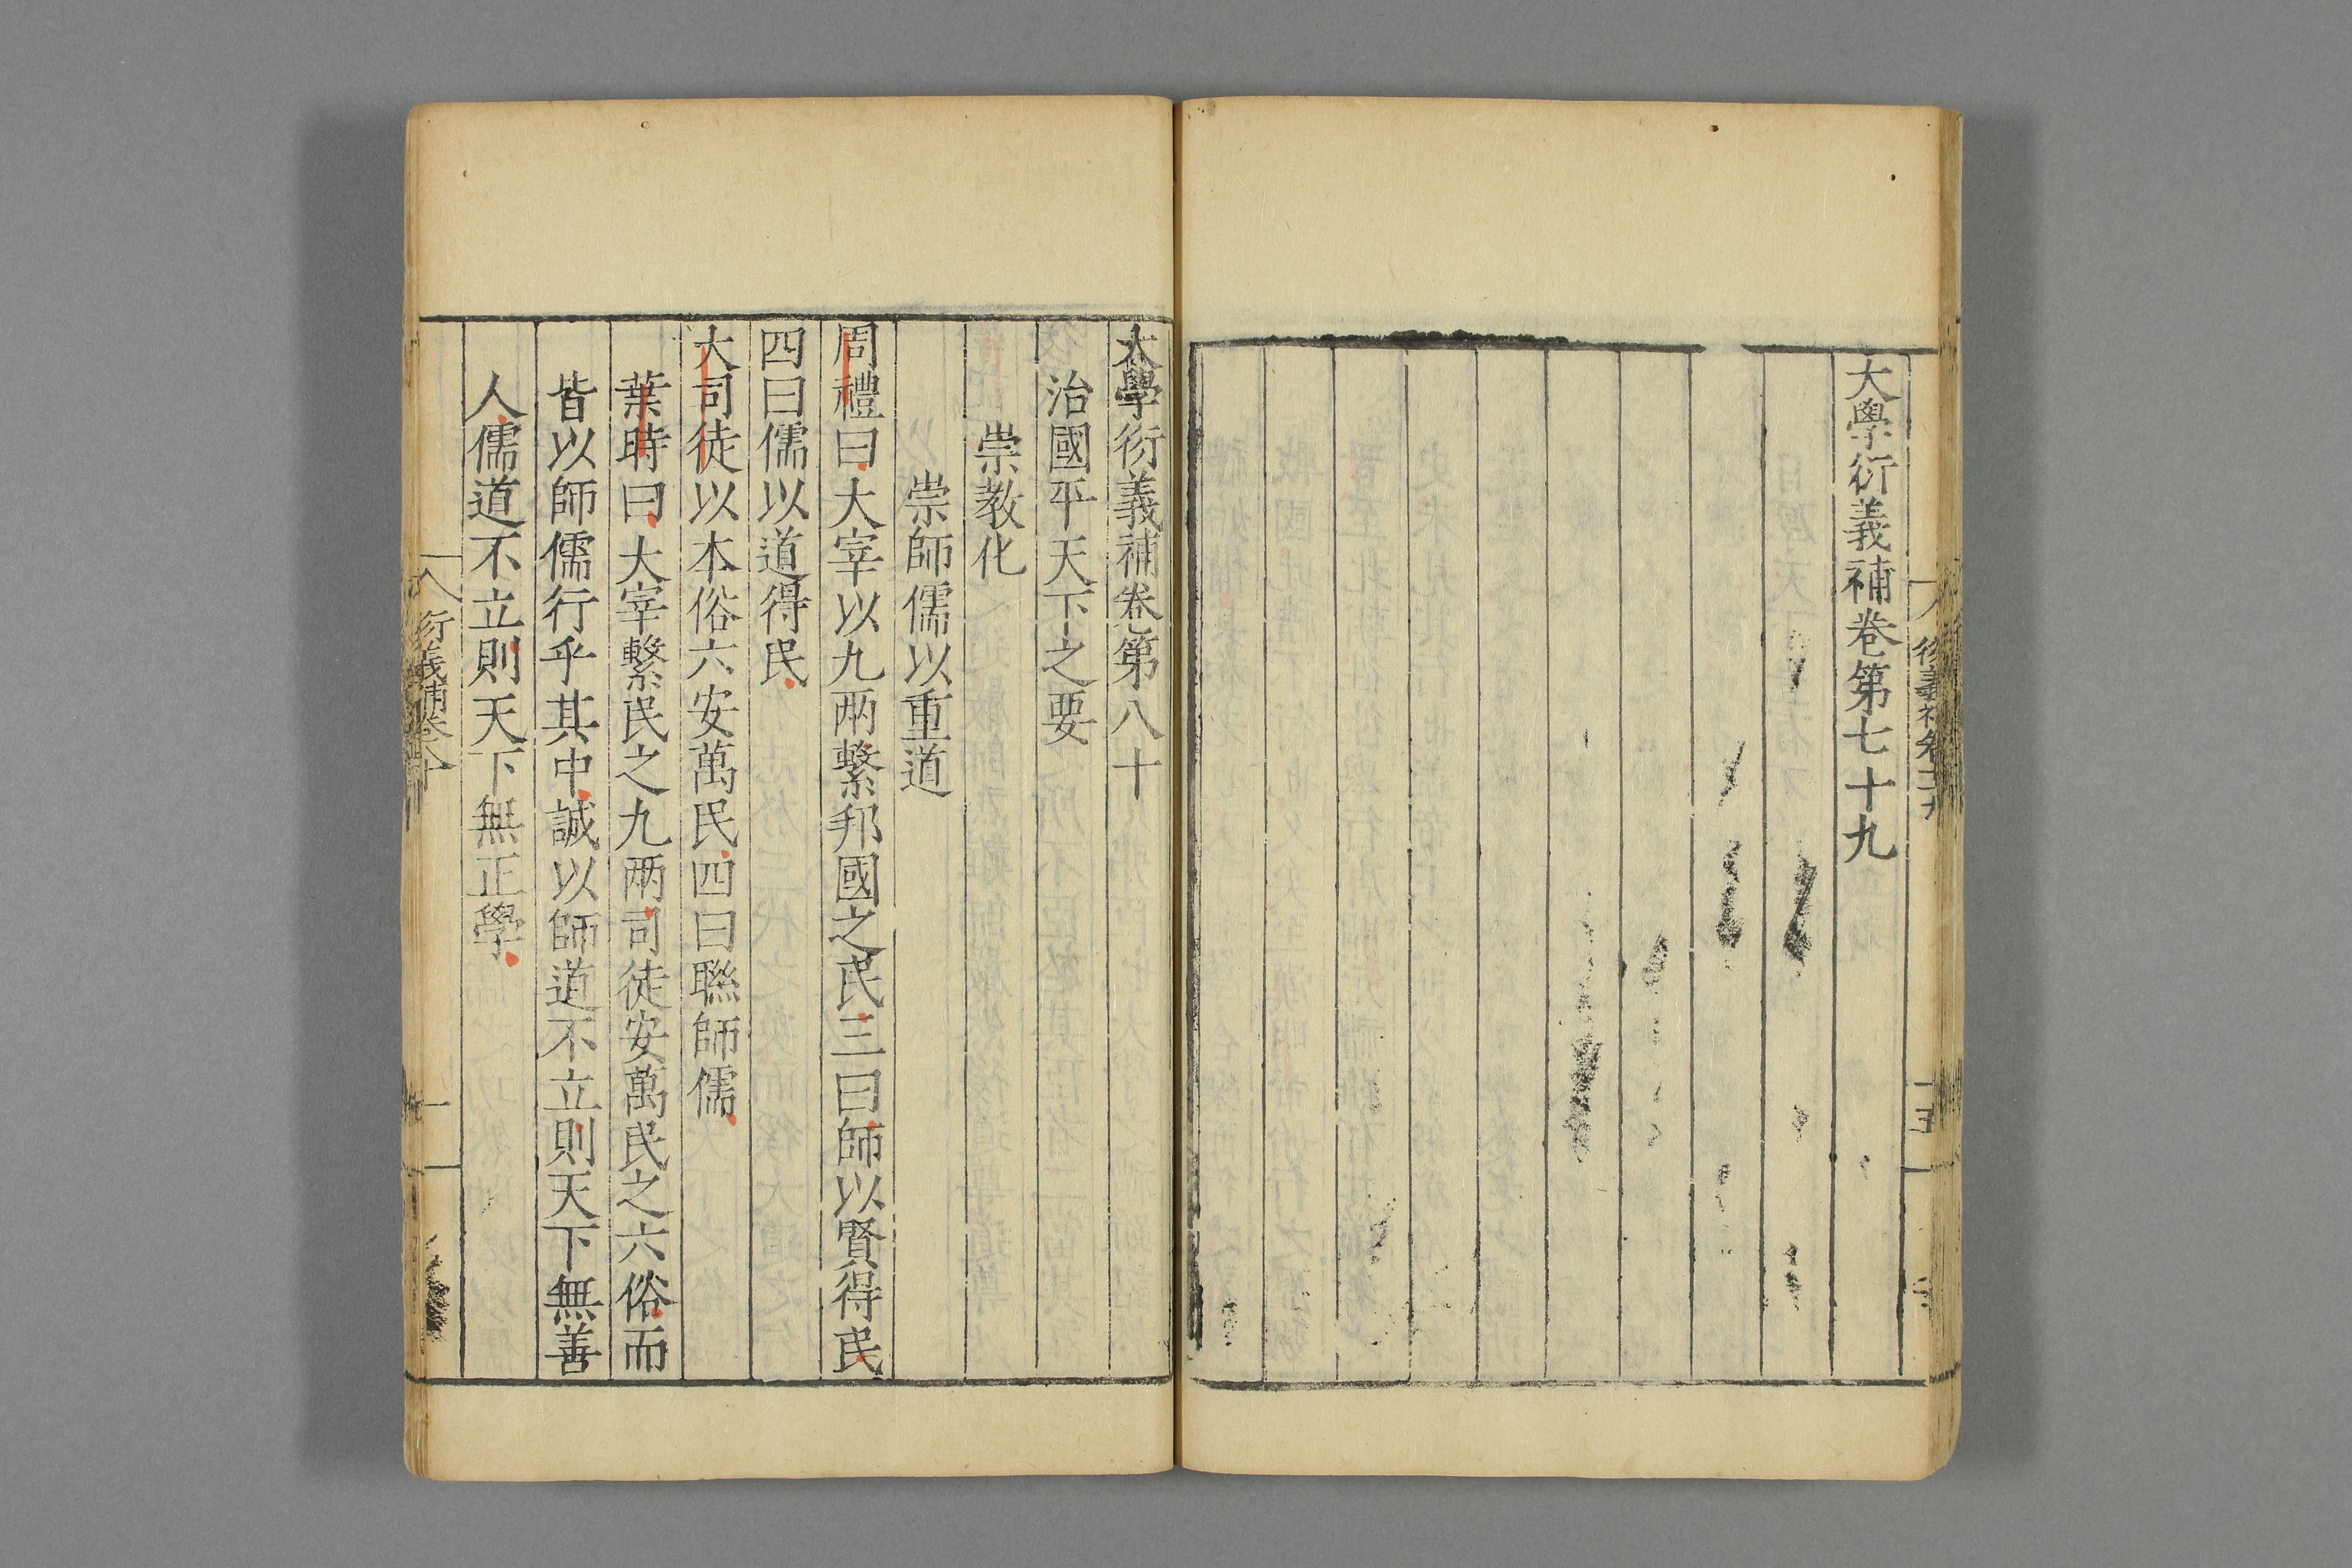 大學衍義補卷第七十九
大學衍義補卷第八十
治國平天下之要
崇教化
崇師儒以重道
周禮曰大宰以九兩繫邦國之民三曰師以賢得民
四曰儒以道得民
大司徒以本俗六安萬民四曰聯師儒
葉時曰大宰繫民之九兩司徒安萬民之六俗而
皆以師儒行乎其中誠以師道不立則天下無善
人儒道不立則天下無正學
衍義補卷八十
一